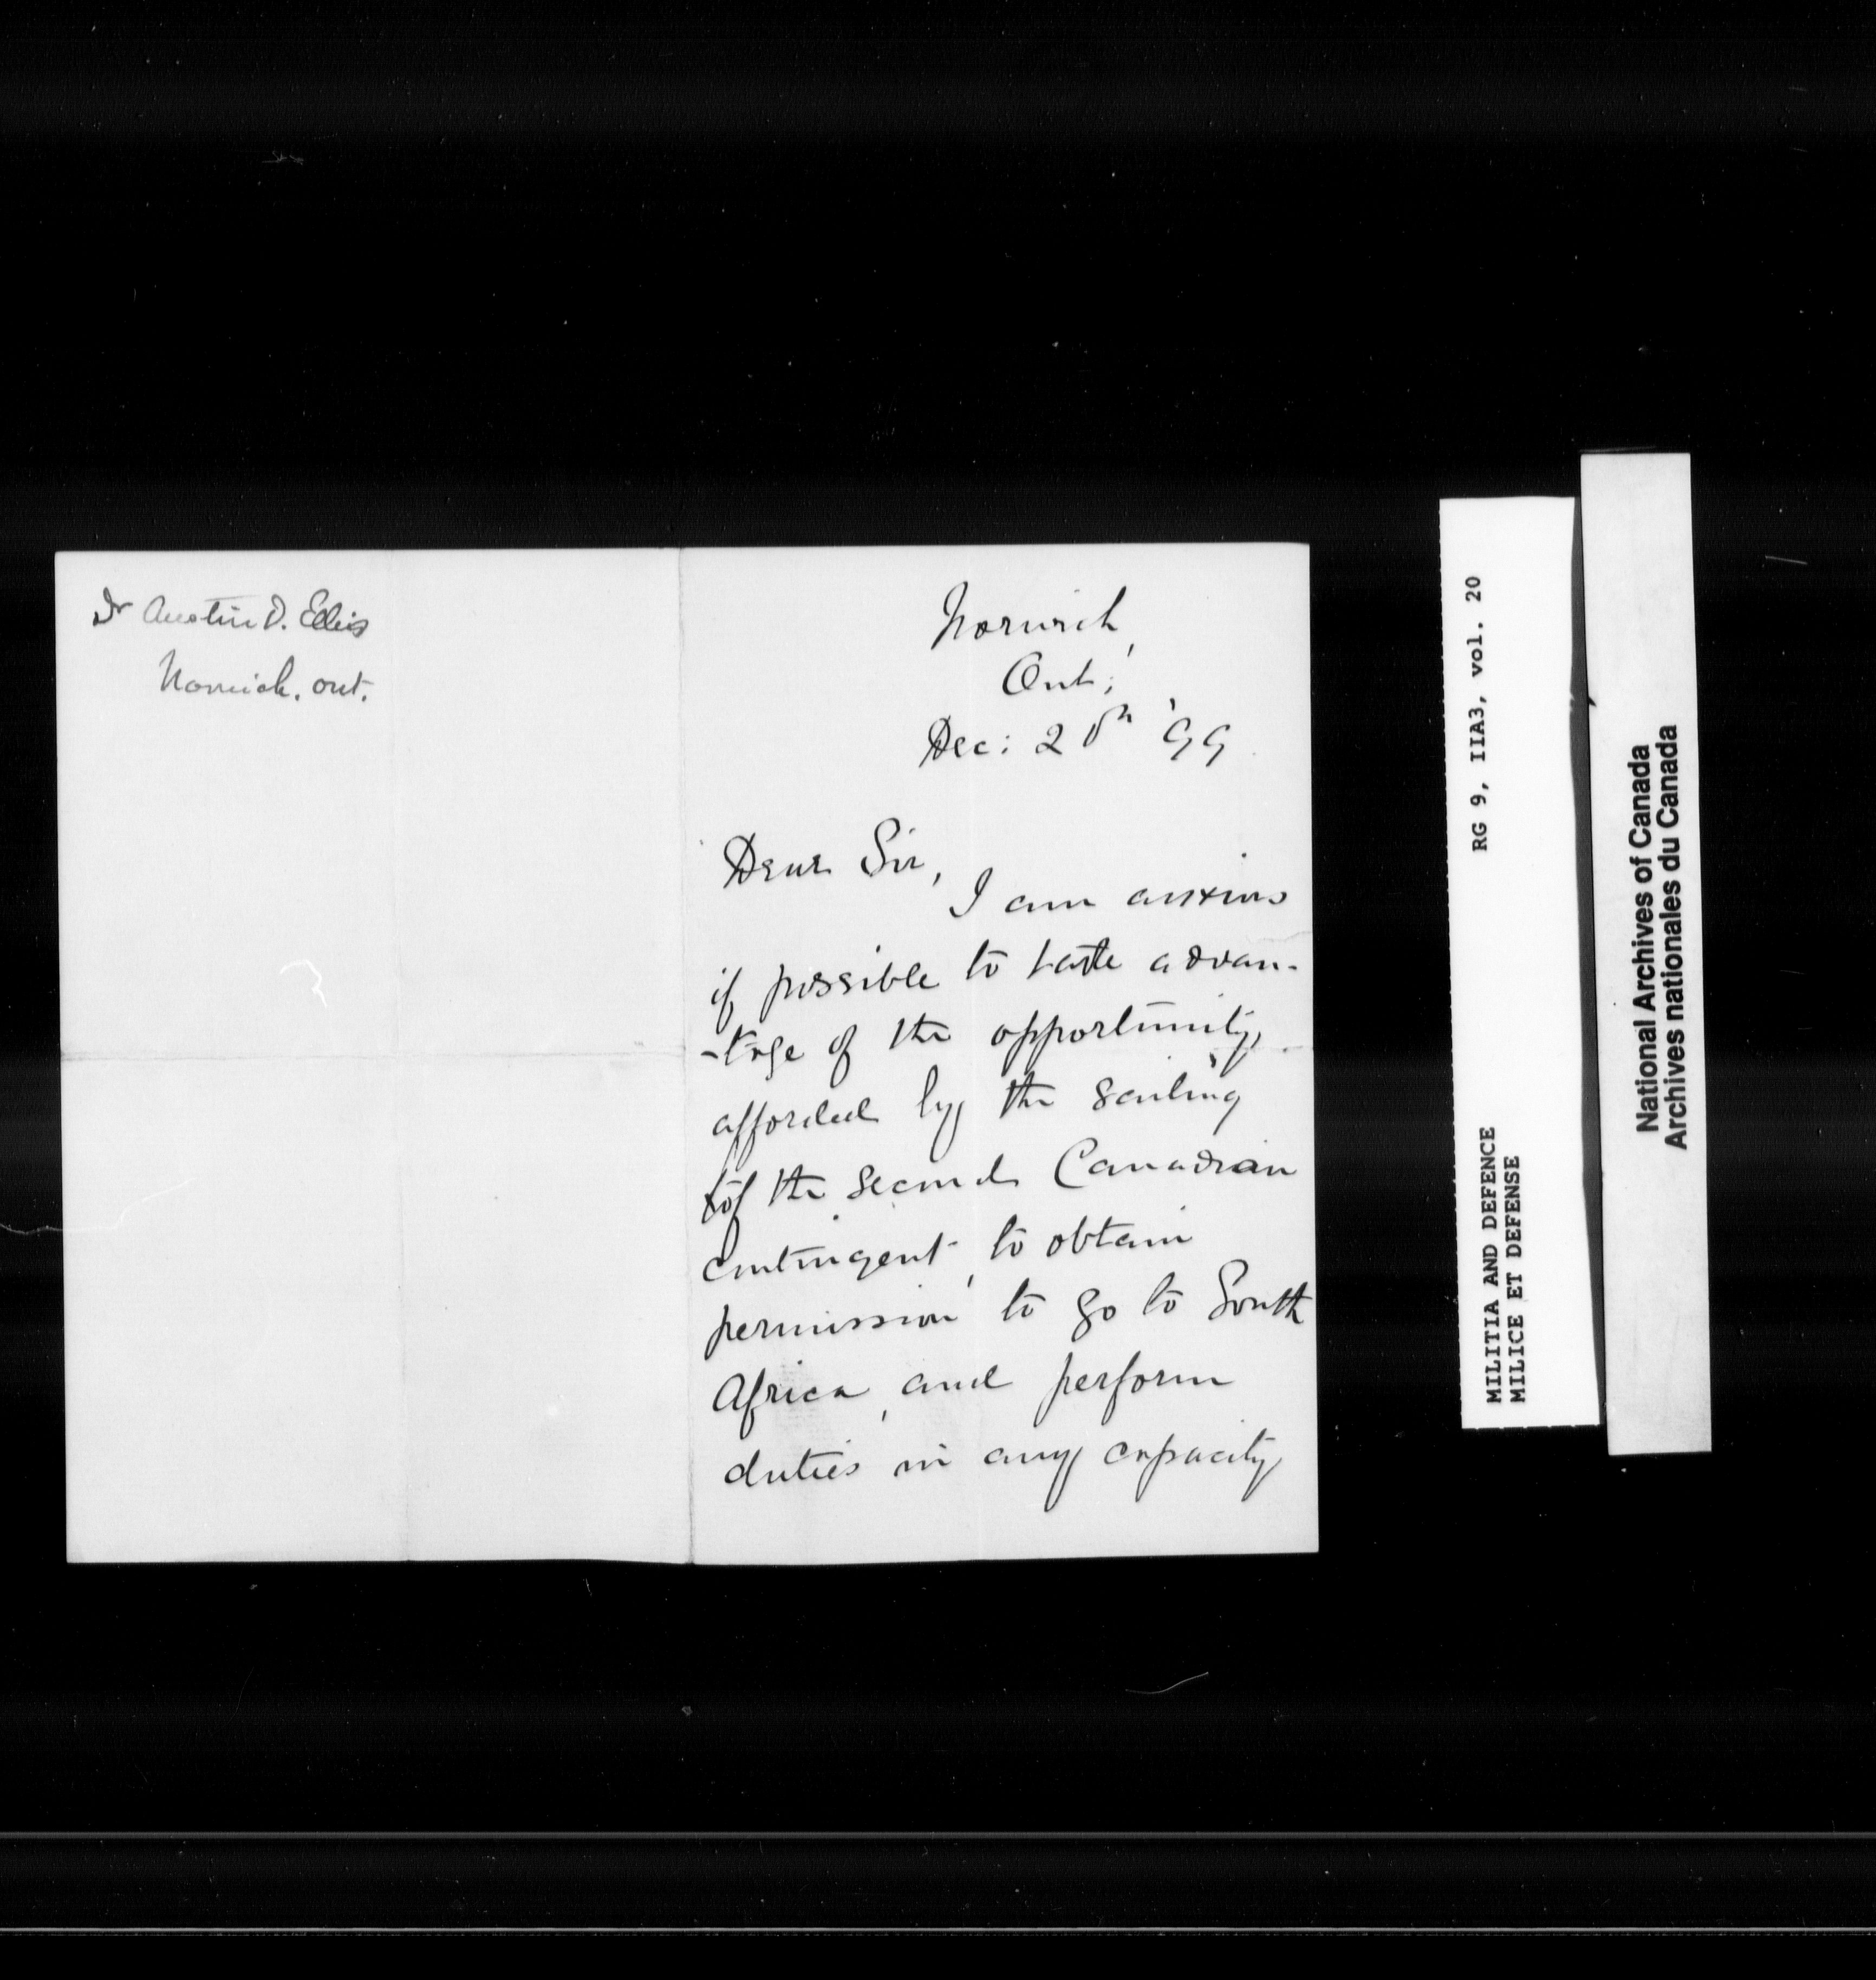 Dr Austin D. Ellis
Norwich. ont.
Norwich,
Ont;
Dec: 20th '99
Dear Sir,
I am anxious
if possible to take advan-
-tage of the opportunity,
afforded by the sailing
of the second Canadian
contingent, to obtain
permission to go to South
Africa, and perform
duties in any capacity
MILITIA AND DEFENCE RG 9, IIA3, vol. 20
MILICE ET DEFENSE
National Archives of Canada
Archives nationales du Canada